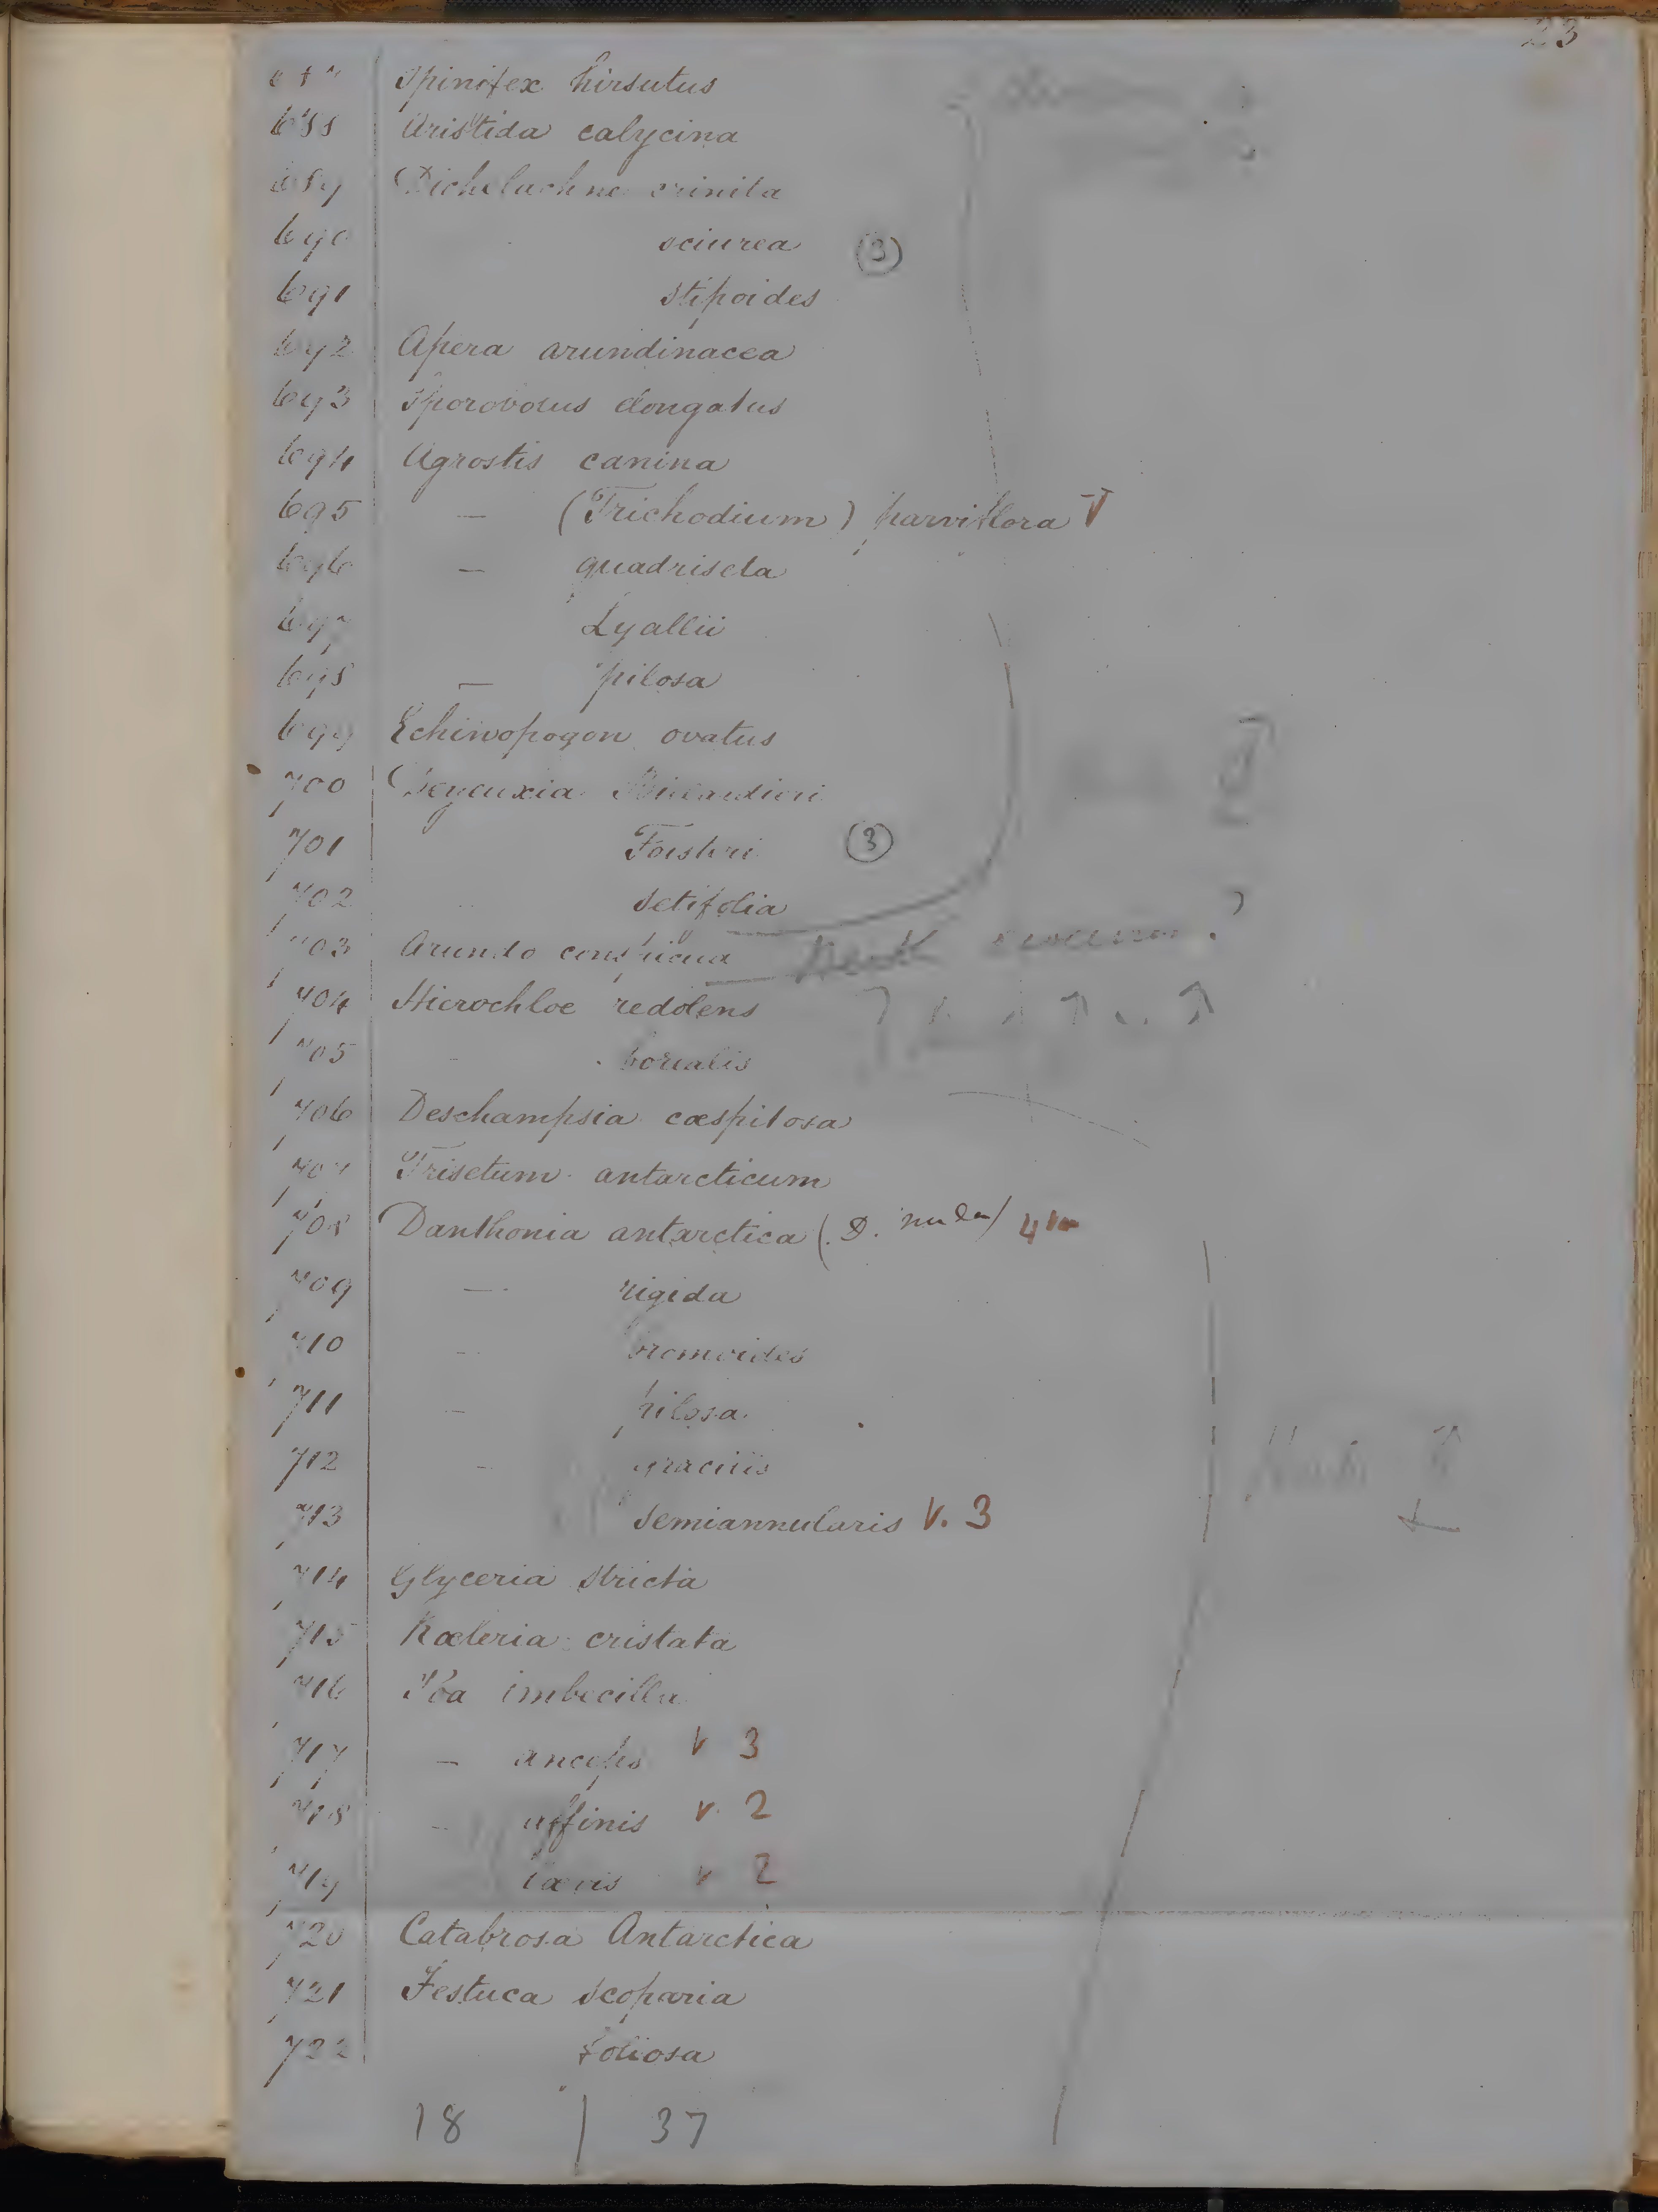 23
Spinifex hirsutus
688 Aristida calycina
689 Dichelachne crinita
690 sciurea (3)
691 stipoides
692 Apera arundinacea
693 Sporobolus elongatus
694 Agrostis canina
695 — (Trichodium) parviflora V
696 — quadriseta
697 Lyallii
698 — pilosa
699 Echinopogon ovatus
700 Deyeuxia
701 Forsteri (3)
702 setifolia
703 Arundo conspicua
704 Hierochloe redolens
705 - borealis
706 Deschampsia cæspitosa
707 Trisetum antarcticum
708 Danthonia antarctica (D. nuda) 4
709 — rigida
710 — bromoides
711 — pilosa
712 — gracilis
713 semiannularis V. 3
714 Glyceria stricta
715 Kæleria cristata
716 Poa imbecilla
717 — anceps V 3
718 — affinis V. 2
719 lævis V 2
720 Catabrosa Antarctica
721 Festuca scoparia
722 foliosa
18 | 37